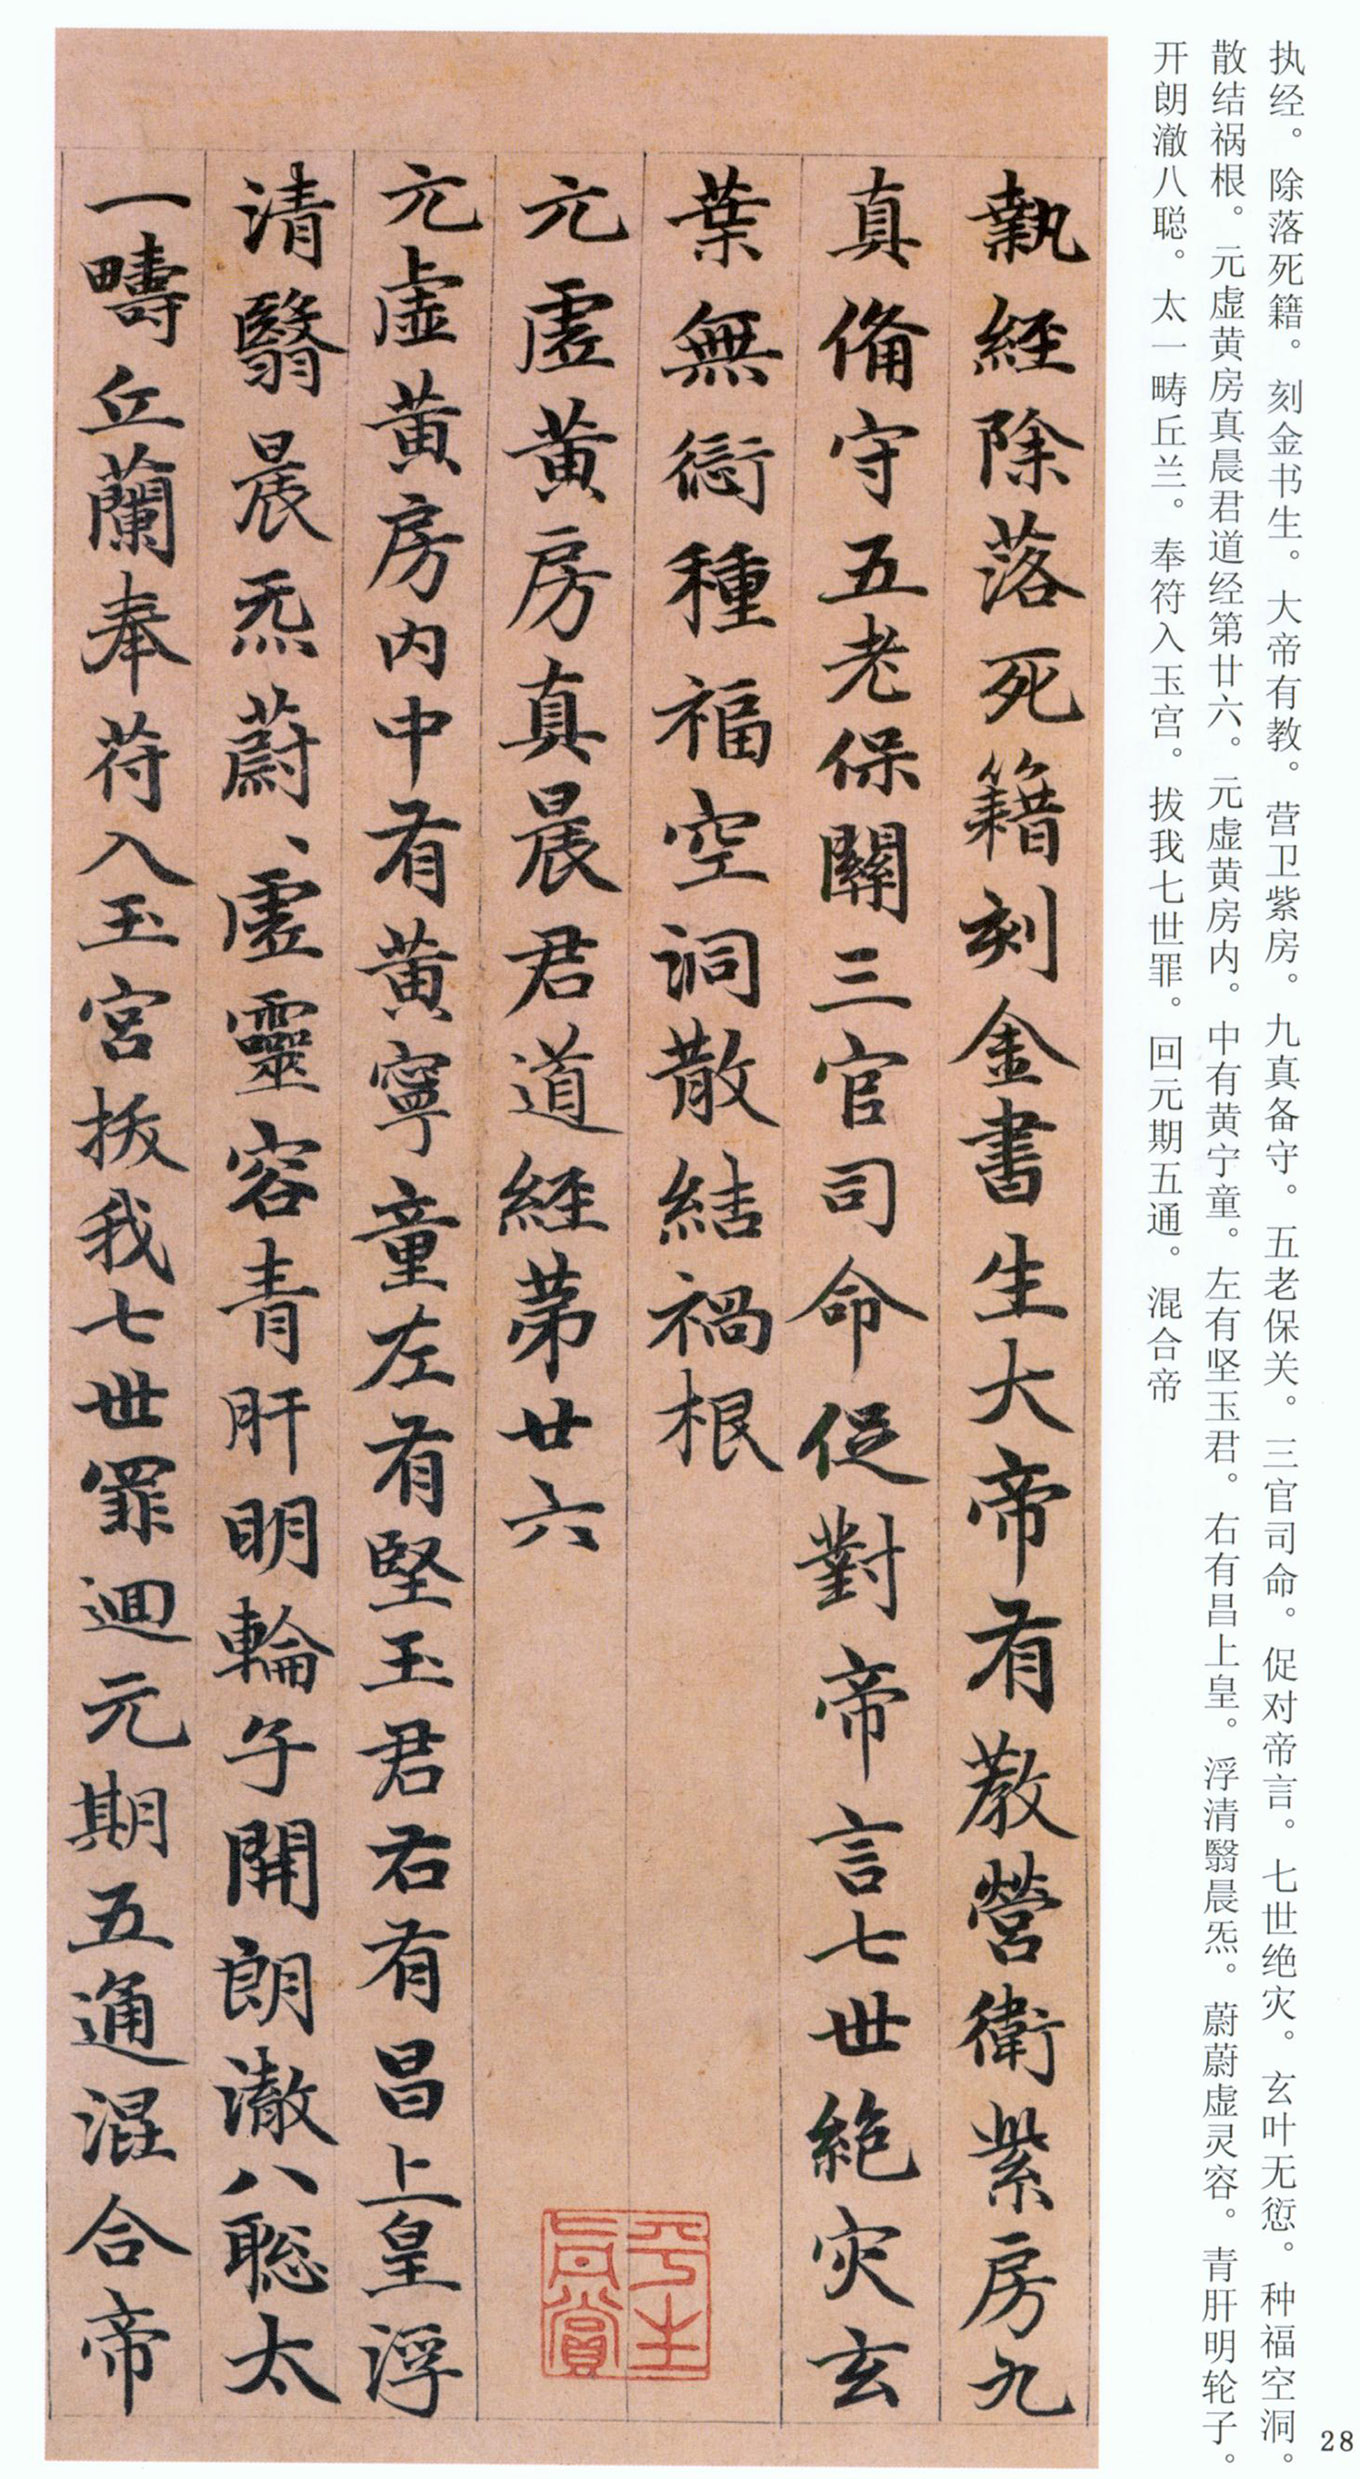 执经。除落死籍。刻金书生。大帝有教。营卫紫房。九真备守。五老保关。三官司命。促对帝言。七世绝灾。玄叶无愆。种福空洞。
散结祸根。元虚黄房真晨君道经第廿六。元虚黄房内。中有黄宁童。左有坚玉君。右有昌上皇。浮清翳晨炁。蔚蔚虚灵容。青肝明轮子。
开朗澈八聪。太一畴丘兰。奉符入玉宫。拔我七世罪。回元期五通。混合帝
執經除落死籍刻金書生大帝有教營衛紫房九
真俻守五老保關三官司命促對帝言七世絶灾玄
葉無愆種福空洞散結禍根
元虛黄房真晨君道經苐廿六
元虛黄房内中有黄寧童左有堅玉君右有昌上皇浮
清翳晨炁蔚、虛靈容青肝明輪子開朗澈八聡太
一疇丘蘭奉符入玉宮拔我七世罪迴元期五通混合帝
平生真賞
28